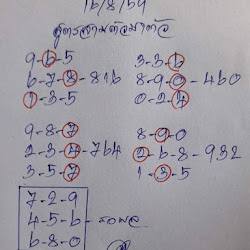 16/8/59
สูตรสามตัวมาตัล
9-6-5
6-7-8-816
1-3-5
3-3-6
8-9-0-460
0-2-4
9-8-7
2-3-4-764
3-5-7
8-9-0
2-6-8-932
1-3-5
7-2-9
4-5-6-รอผล
6-8-0